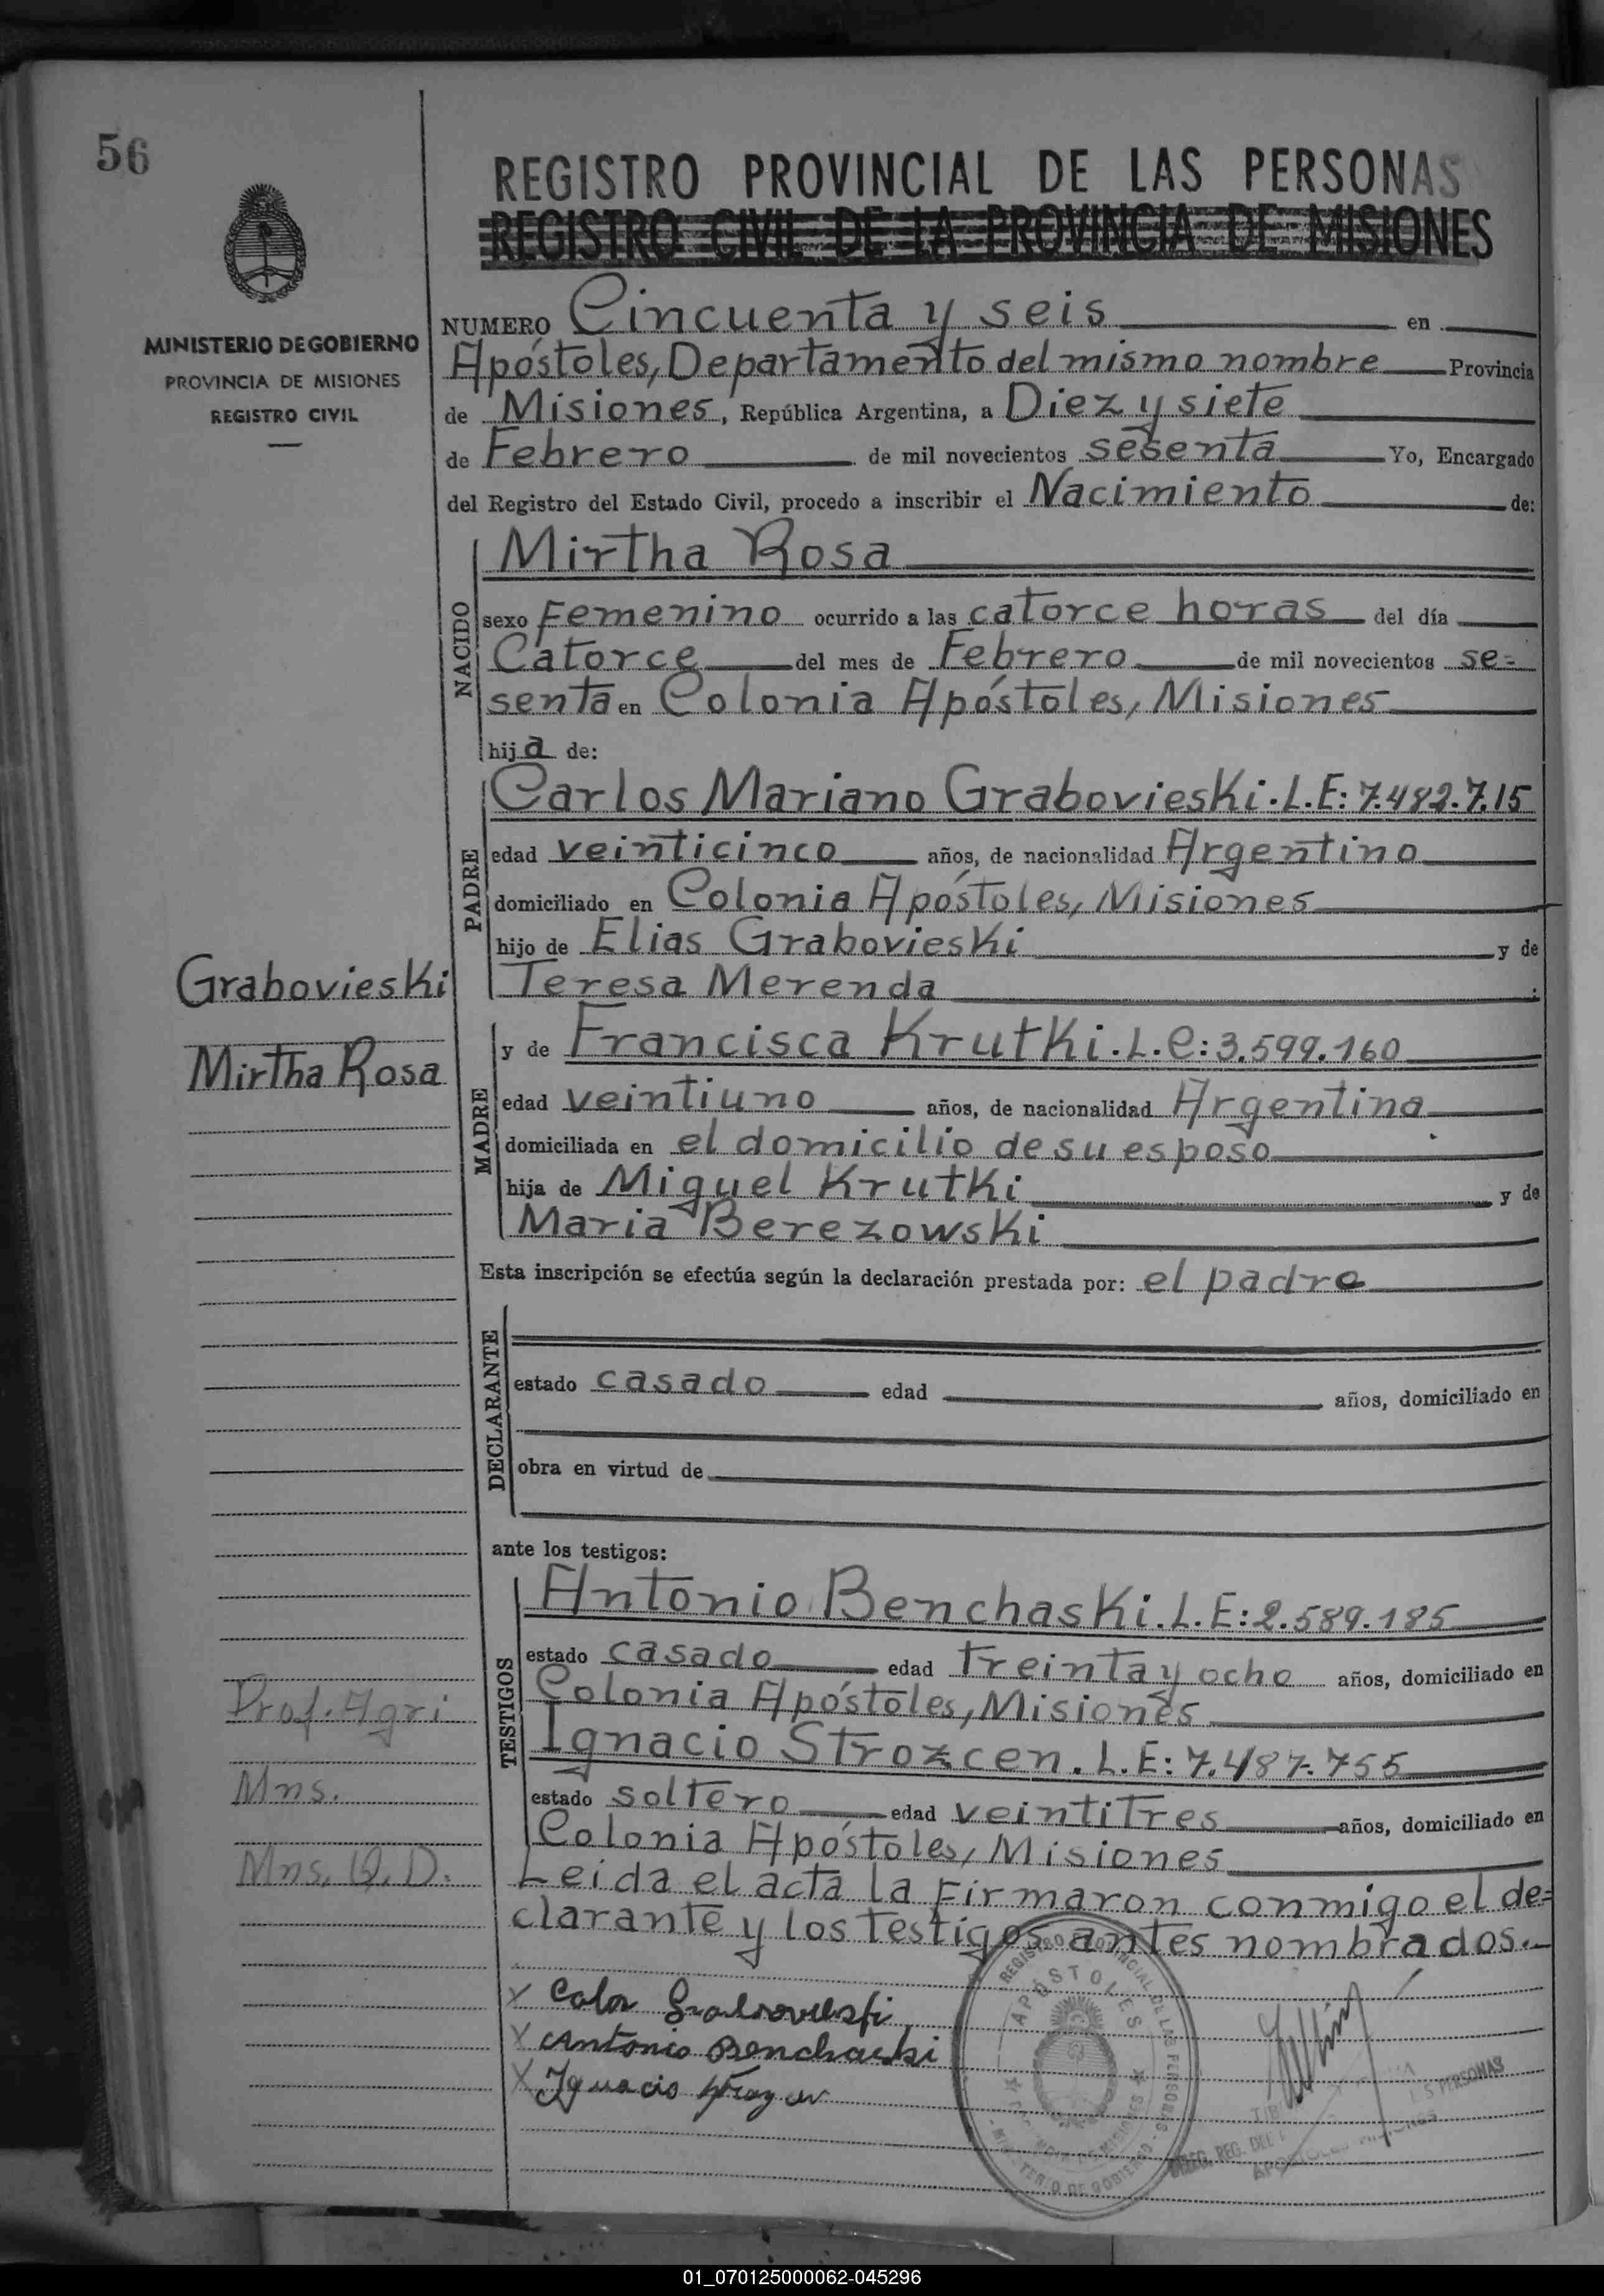 56
REGISTRO PROVINCIAL DE LAS PERSONAS
REGISTRO CIVIL DE LA PROVINCIA DE MISIONES
MINISTERIO DE GOBIERNO
PROVINCIA DE MISIONES
REGISTRO CIVIL
NUMERO Cincuenta y seis en
Apóstoles, Departamento del mismo nombre Provincia
de Misiones, República Argentina, a Diez y siete
de Febrero de mil novecientos sesenta Yo, Encargado
del Registro del Estado Civil, procedo a inscribir el Nacimiento de:
NACIDO
Mirtha Rosa
sexo Femenino ocurrido a las catorce horas del día
Catorce del mes de Febrero de mil novecientos se=
senta en Colonia Apóstoles, Misiones
hija de:
PADRE
Carlos Mariano Grabovieski. L.E: 7.482.715
edad veinticinco años, de nacionalidad Argentino
domiciliado en Colonia Apóstoles, Misiones
hijo de Elias Grabovieski y de
Teresa Merenda
Grabovieski
Mirtha Rosa
MADRE
y de Francisca Krutki. L.C: 3.599.160
edad veintiuno años, de nacionalidad Argentina
domiciliada en el domicilio de su esposo
hija de Miguel Krutki y de
Maria Berezowski
Esta inscripción se efectúa según la declaración prestada por: el padre
DECLARANTE
estado casado edad años, domiciliado en
obra en virtud de
ante los testigos:
TESTIGOS
Antonio Benchaski. L.E: 2.589.185
estado casado edad treinta y ocho años, domiciliado en
Colonia Apóstoles, Misiones
Ignacio Strozcen. L.E: 7.487.755
estado soltero edad veintitres años, domiciliado en
Colonia Apóstoles, Misiones
Leida el acta la firmaron conmigo el de=
clarante y los testigos antes nombrados.
Prof. Agri
Mns.
Mns. Q. D.
x Antonio Benchaski
x Ignacio
REGISTRO PROVINCIAL DE LAS PERSONAS
APÓSTOLES
MINISTERIO DE GOBIERNO
REG. DEL
PERSONAS
01_070125000062-045296